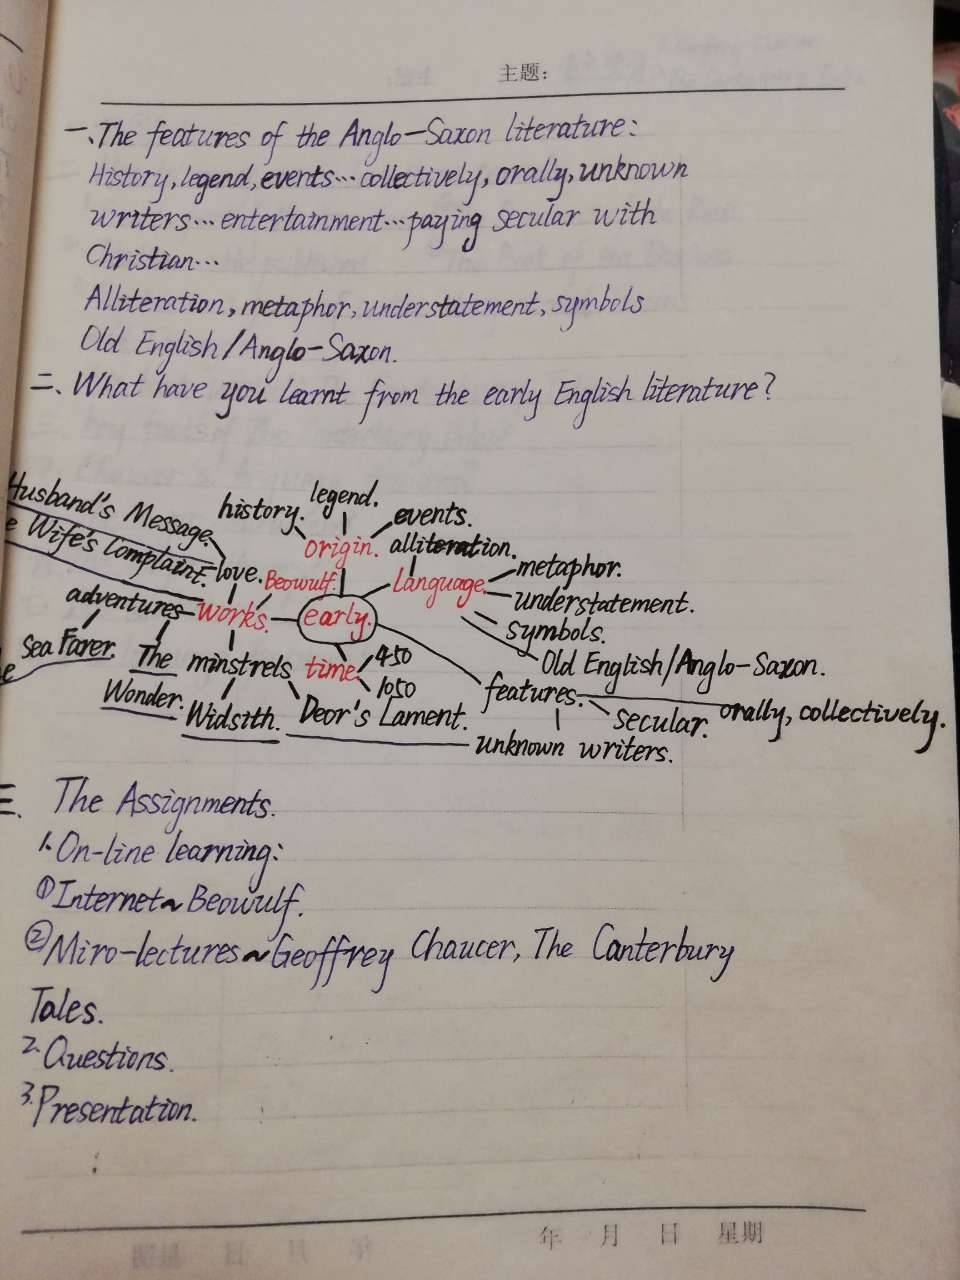 主题:
一、The features of the Anglo-Saxon literature:
History, legend, events... collectively, orally, unknown
writers... entertainment... paying secular with
Christian...
Alliteration, metaphor, understatement, symbols
Old English/Anglo-Saxon.
二、What have you learnt from the early English literature?
Husband's Message.
e Wife's Complaint.
history.
legend.
events.
origin.
alliteration.
love.
Beowulf.
Language.
metaphor.
understatement.
adventures
works.
early.
symbols.
Sea Farer.
The
minstrels
time.
450
1050
Old English/Anglo-Saxon.
features.
Wonder.
Widsith.
Deor's Lament.
secular.
orally, collectively.
unknown writers.
三、The Assignments.
1. On-line learning:
①Internet~Beowulf.
②Miro-lectures~Geoffrey Chaucer, The Canterbury
Tales.
2. Questions.
3. Presentation.
年 月 日 星期